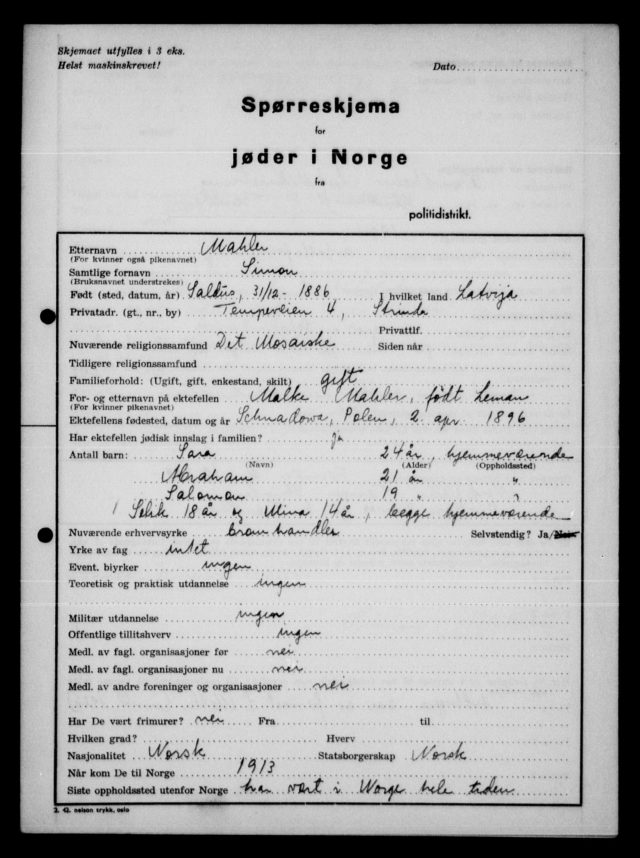 Skjemaet utfylles i 3 eks.
Helst maskinskrevet!
Dato
Spørreskjema
for
jøder i Norge
fra
politidistrikt.
Etternavn Mahler
(For kvinner også pikenavnet)
Samtlige fornavn Simon
(Bruksnavnet understrekes)
Født (sted, datum, år) Saldus, 31/12 - 1886 I hvilket land Latvija
Privatadr. (gt., nr., by) Tempeveien 4, Strinda
Privattlf.
Nuværende religionssamfund Det Mosaiske Siden når
Tidligere religionssamfund
Familieforhold: (Ugift, gift, enkestand, skilt) gift
For- og etternavn på ektefellen Malke Mahler, født Leman
(For kvinner pikenavnet)
Ektefellens fødested, datum og år Schnadowa, Polen, 2 apr. 1896
Har ektefellen jødisk innslag i familien? ja
Antall barn: Sara 24 år, hjemmeværende
(Navn) (Alder) (Oppholdssted)
Abraham 21 år "
Salomon 19 " "
Selik 18 år og Mina 14 år, begge hjemmeværende
Nuværende erhvervsyrke Selvstendig? Ja/Nei
Yrke av fag intet
Event. biyrker ingen
Teoretisk og praktisk utdannelse ingen
Militær utdannelse ingen
Offentlige tillitshverv ingen
Medl. av fagl. organisasjoner før nei
Medl. av fagl. organisasjoner nu nei
Medl. av andre foreninger og organisasjoner nei
Har De vært frimurer? nei Fra til
Hvilken grad? Hverv
Nasjonalitet Norsk Statsborgerskap Norsk
Når kom De til Norge 1913
Siste oppholdssted utenfor Norge har vært i Norge hele tiden
2. 42. nelson trykk, oslo